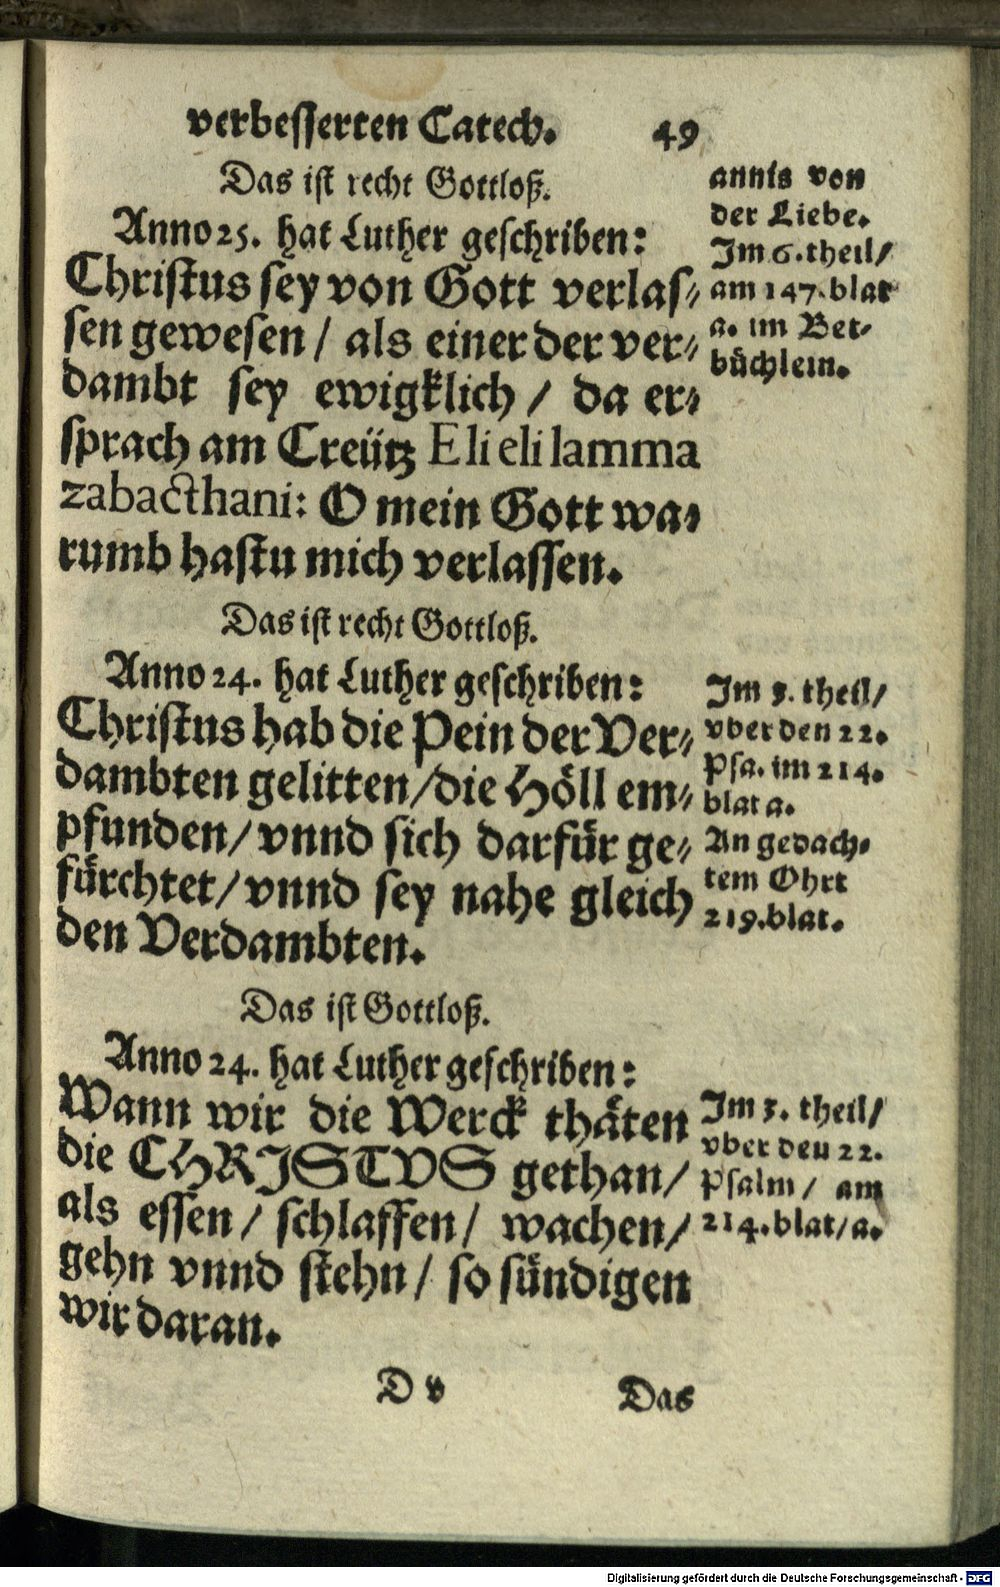 verbesserten Catech. 49
Das ist recht Gottloß.
Anno 25. hat Luther geschriben:
Christus sey von Gott verlas⸗
sen gewesen / als einer der ver⸗
dambt sey ewigklich / da er⸗
sprach am Creütz Eli eli lamma
zabacthani: O mein Gott wa⸗
rumb hastu mich verlassen.
annis von
der Liebe.
Im 6. theil/
am 147. blat
a. im Bet⸗
büchlein.
Das ist recht Gottloß.
Anno 24. hat Luther geschriben:
Christus hab die Pein der Ver⸗
dambten gelitten/die Höll em⸗
pfunden/ vnnd sich darfür ge⸗
fürchtet/ vnnd sey nahe gleich
den Verdambten.
Im 3. theil/
vber den 22.
Psa. im 214.
blat a.
An gedach⸗
tem Ohrt
219. blat.
Das ist Gottloß.
Anno 24. hat Luther geschriben:
Wann wir die Werck thäten
die CHRISTVS gethan/
als essen / schlaffen / wachen /
gehn vnnd stehn / so sündigen
wir daran.
Im 3. theil/
vber den 22.
Psalm / am
214. blat/a.
D v Das
Digitalisierung gefördert durch die Deutsche Forschungsgemeinschaft - DFG